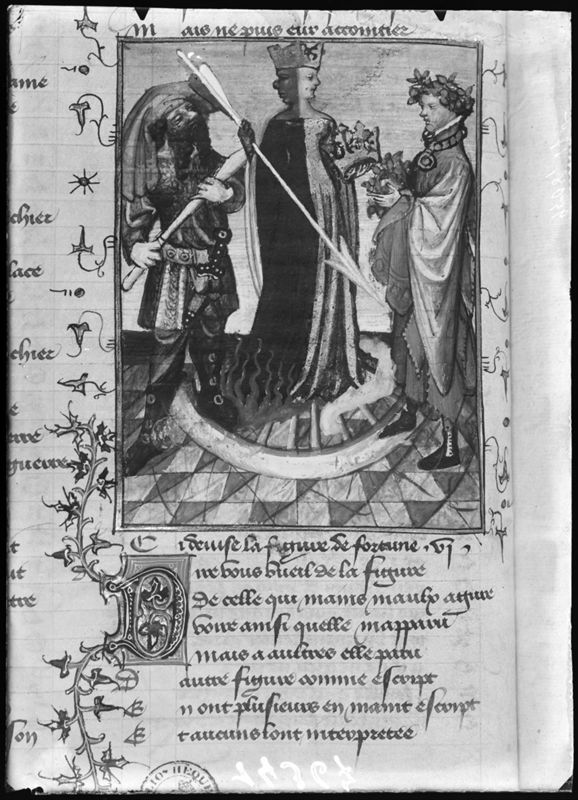 M ais ne puis eur acointier
ame
chier
lace
chier
erre
guerre
t
ut
tre
son
C i devise la figure de fortune . vi .
D ire vous vueil de la figure
De celle qui mains maulx agure
Voire ainsi quelle mapparu
Mais a aultres elle paru
D autre figure comme escript
E n ont plusieurs en maint escript
E t aucuns lont interpretee